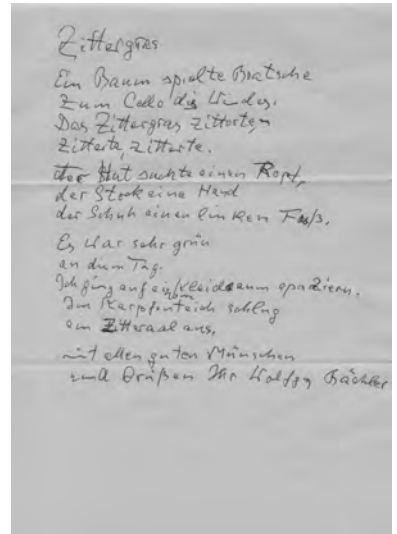 Zittergras
Ein Baum spielte Bratsche
zum Cello des Windes.
Das Zittergras zitterte,
zitterte, zitterte.
der Hut suchte einen Kopf,
der Stock eine Hand
der Schuh einen linken Fuß.
Es war sehr grün
an diesem Tag.
Ich ging auf ein Kleid zum spazieren.
Im Karpfenteich schlug
ein Zitteraal aus.
mit allen guten Wünschen
und Grüßen Ihr Wolfgang Bächler